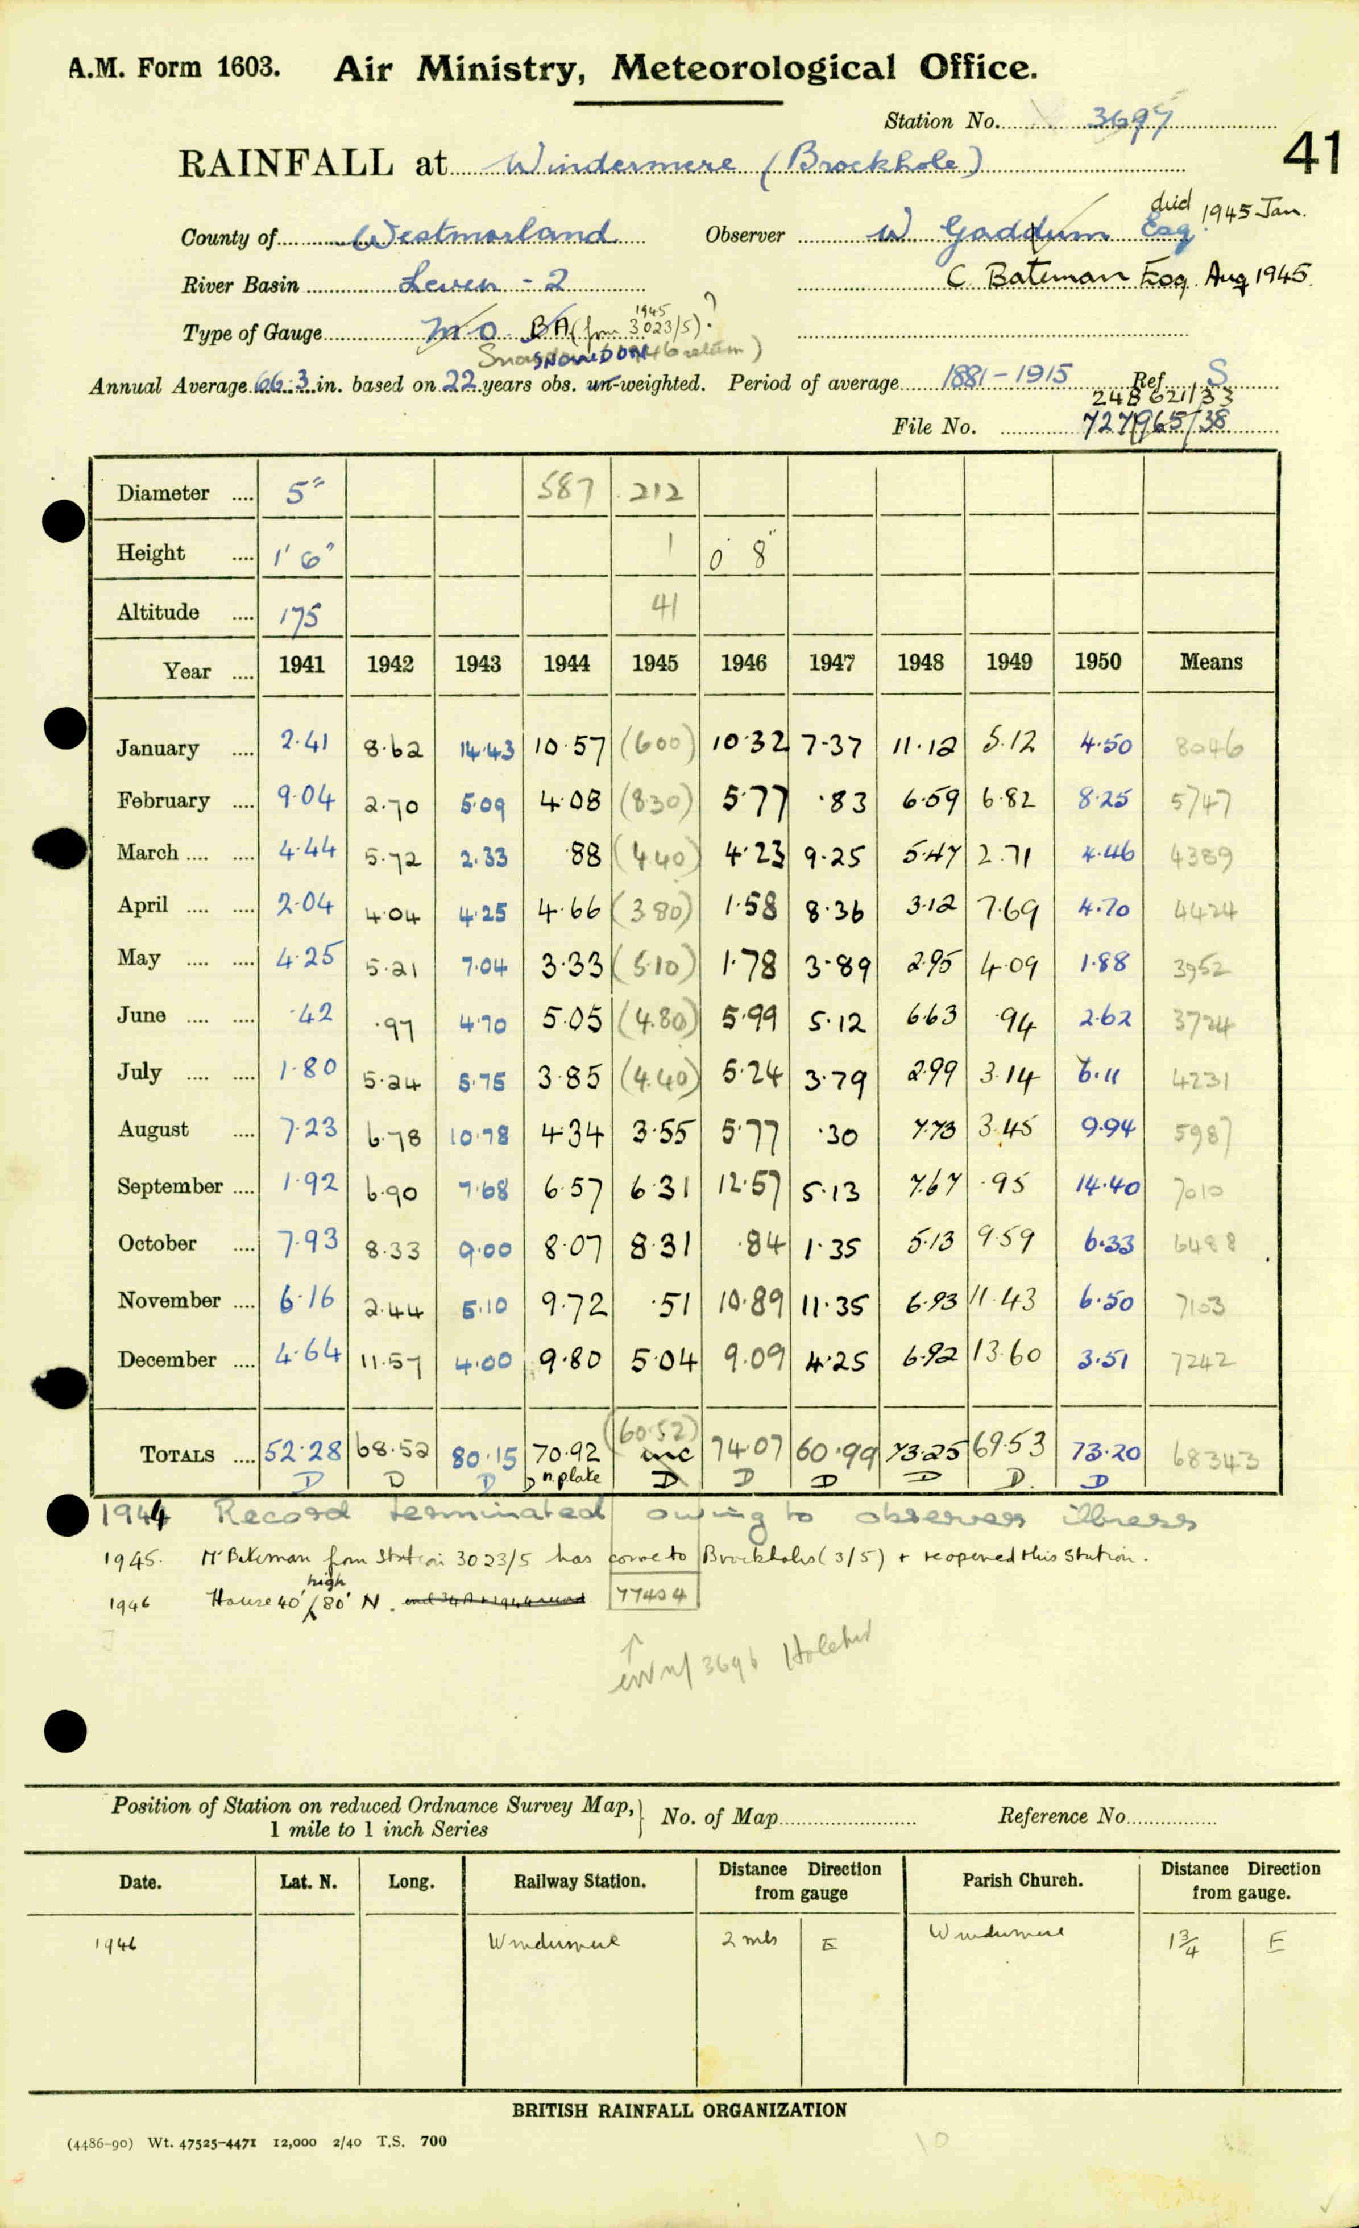 A.M. Form 1603. Air Ministry, Meteorological Office.
Station No. 3695
41
RAINFALL at Windermere (Brockhole)
County of Westmorland Observer W Gaddum Esq. died 1945 Jan.
River Basin Leven - 2 C. Bateman Esq. Aug 1945
Type of Gauge M O BA (from 3023/5) 1945 ?
SNOWDON (1946 return)
Annual Average 66.3 in. based on 22 years obs. un-weighted. Period of average 1881-1915 Ref. S
248621/33
File No. 727965/38
Diameter .... 5" 587 212
Height .... 1' 6" 1 0' 8"
Altitude .... 175 41
Year .... 1941 1942 1943 1944 1945 1946 1947 1948 1949 1950 Means
January .... 2.41 8.62 14.43 10.57 (600) 10.32 7.37 11.12 5.12 4.50 8046
February .... 9.04 2.70 5.09 4.08 (830) 5.77 .83 6.59 6.82 8.25 5747
March .... .... 4.44 5.72 2.33 .88 (4.40) 4.23 9.25 5.47 2.71 4.46 4389
April .... .... 2.04 4.04 4.25 4.66 (380) 1.58 8.36 3.12 7.69 4.70 4424
May .... .... 4.25 5.21 7.04 3.33 (510) 1.78 3.89 2.95 4.09 1.88 3952
June .... .... .42 .97 4.70 5.05 (4.80) 5.99 5.12 6.63 .94 2.62 3724
July .... .... 1.80 5.24 5.75 3.85 (4.40) 5.24 3.79 2.99 3.14 6.11 4231
August .... 7.23 6.78 10.78 4.34 3.55 5.77 .30 7.73 3.45 9.94 5987
September .... 1.92 6.90 7.68 6.57 6.31 12.57 5.13 7.67 .95 14.40 7010
October .... 7.93 8.33 9.00 8.07 8.31 .84 1.35 5.13 9.59 6.33 6488
November .... 6.16 2.44 5.10 9.72 .51 10.89 11.35 6.93 11.43 6.50 7103
December .... 4.64 11.57 4.00 9.80 5.04 9.09 4.25 6.92 13.60 3.51 7242
(60.52)
TOTALS .... 52.28 68.52 80.15 70.92 inc 74.07 60.99 73.25 69.53 73.20 68343
D D D D n.plate D D D D D. D
1944 Record terminated owing to observers illness
1945. Mr Bateman from Station 3023/5 has come to Brockhole (3/5) + reopened this Station.
1946 House 40' high / 80' N. 77404
3696 Holehird
Position of Station on reduced Ordnance Survey Map, 1 mile to 1 inch Series } No. of Map Reference No.
Date. Lat. N. Long. Railway Station. Distance Direction from gauge Parish Church. Distance Direction from gauge.
1946 Windermere 2 mls E Windermere 1 3/4 E
BRITISH RAINFALL ORGANIZATION
(4486-90) Wt. 47525-4471 12,000 2/40 T.S. 700
10